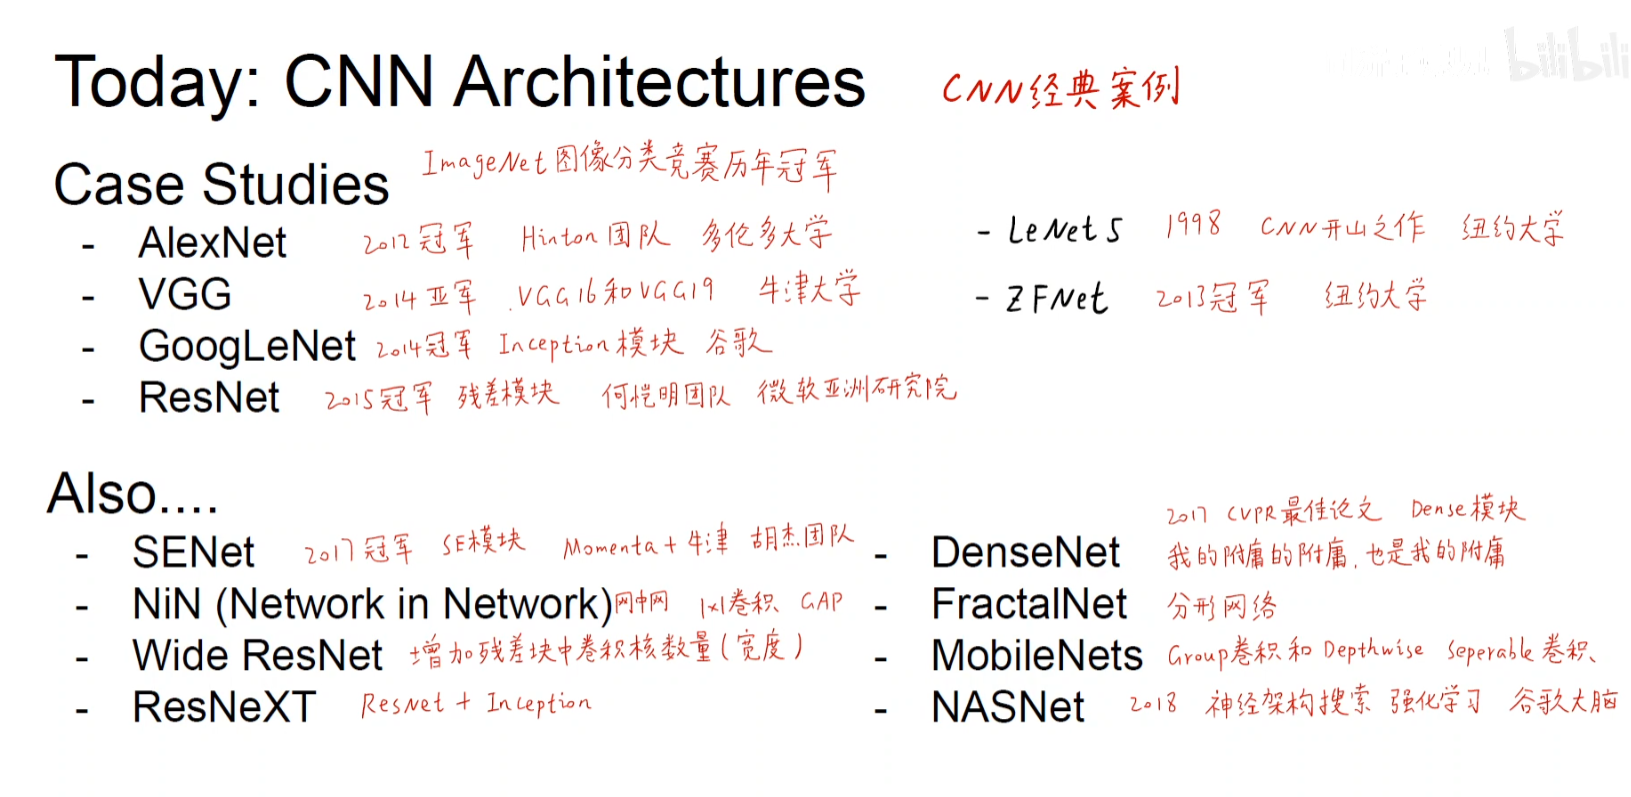 bilibili
Today: CNN Architectures CNN经典案例
Case Studies ImageNet图像分类竞赛历年冠军
- AlexNet 2012冠军 Hinton团队 多伦多大学
- VGG 2014亚军 VGG16和VGG19 牛津大学
- GoogLeNet 2014冠军 Inception模块 谷歌
- ResNet 2015冠军 残差模块 何恺明团队 微软亚洲研究院
- LeNet5 1998 CNN开山之作 纽约大学
- ZFNet 2013冠军 纽约大学
Also....
- SENet 2017冠军 SE模块 Momenta+牛津 胡杰团队
- NiN (Network in Network) 网中网 1x1卷积、GAP
- Wide ResNet 增加残差块中卷积核数量(宽度)
- ResNeXT ResNet + Inception
2017 CVPR最佳论文 Dense模块
- DenseNet 我的附庸的附庸,也是我的附庸
- FractalNet 分形网络
- MobileNets Group卷积和Depthwise Seperable卷积、
- NASNet 2018 神经架构搜索 强化学习 谷歌大脑